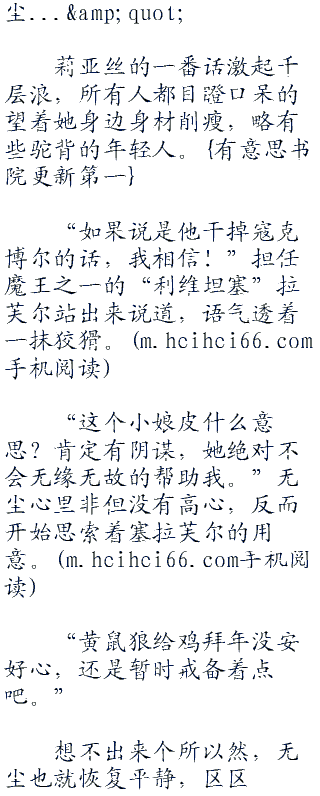 尘...&amp;quot;
莉亚丝的一番话激起千
层浪，所有人都目瞪口呆的
望着她身边身材削瘦，略有
些驼背的年轻人。{有意思书
院更新第一}
“如果说是他干掉寇克
博尔的话，我相信！”担任
魔王之一的“利维坦塞”拉
芙尔站出来说道，语气透着
一抹狡猾。(m.hcihci66.com
手机阅读)
“这个小娘皮什么意
思？肯定有阴谋，她绝对不
会无缘无故的帮助我。”无
尘心里非但没有高心，反而
开始思索着塞拉芙尔的用
意。(m.hcihci66.com手机阅
读)
“黄鼠狼给鸡拜年没安
好心，还是暂时戒备着点
吧。”
想不出来个所以然，无
尘也就恢复平静，区区